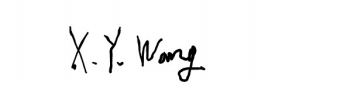 X. Y. Wang